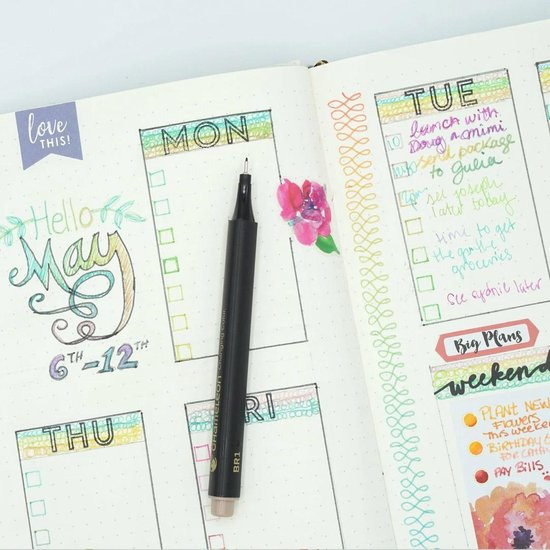 love
THIS!
Hello
May
6TH-12TH
MON
THU
RI
chameleon
BR1
TUE
lunch with
Doug n mimi
send package
to Gulia
see joseph
later today
time to get
the
groceries
See sydnie later
Big Plans
weekend
PLANT NEW
Flowers
This weeken
BIRTHDAY C
FOR CATH
PAY BILLS